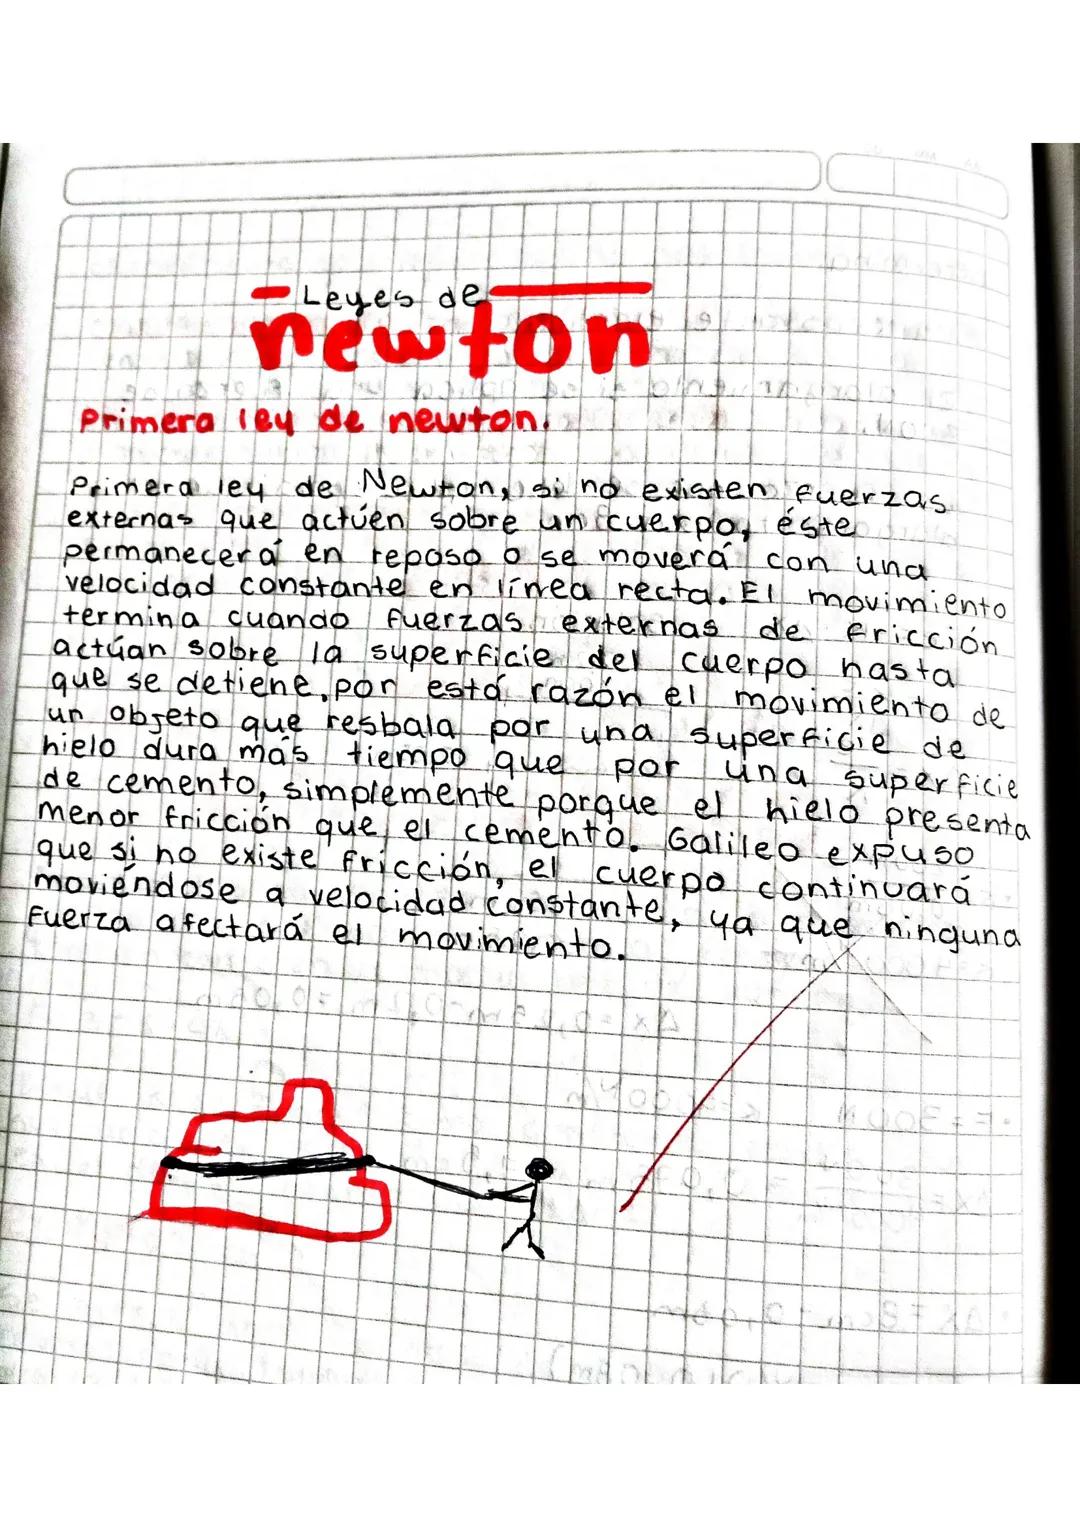 Leyes de
newton
Primera ley de newton.
Primera ley de Newton, si no existen fuerzas
externas que actúen sobre un cuerpo, éste
permanecerá en reposo o se moverá con una
velocidad constante en línea recta. El movimiento
termina cuando fuerzas externas de fricción
actúan sobre la superficie del cuerpo hasta
que se detiene, por está razón el movimiento de
un objeto que resbala por una superficie de
hielo dura más tiempo que por una superficie
de cemento, simplemente porque el hielo presenta
menor fricción que el cemento. Galileo expuso
que si no existe fricción, el cuerpo continuará
moviéndose a velocidad constante, ya que ninguna
Fuerza afectará el movimiento.